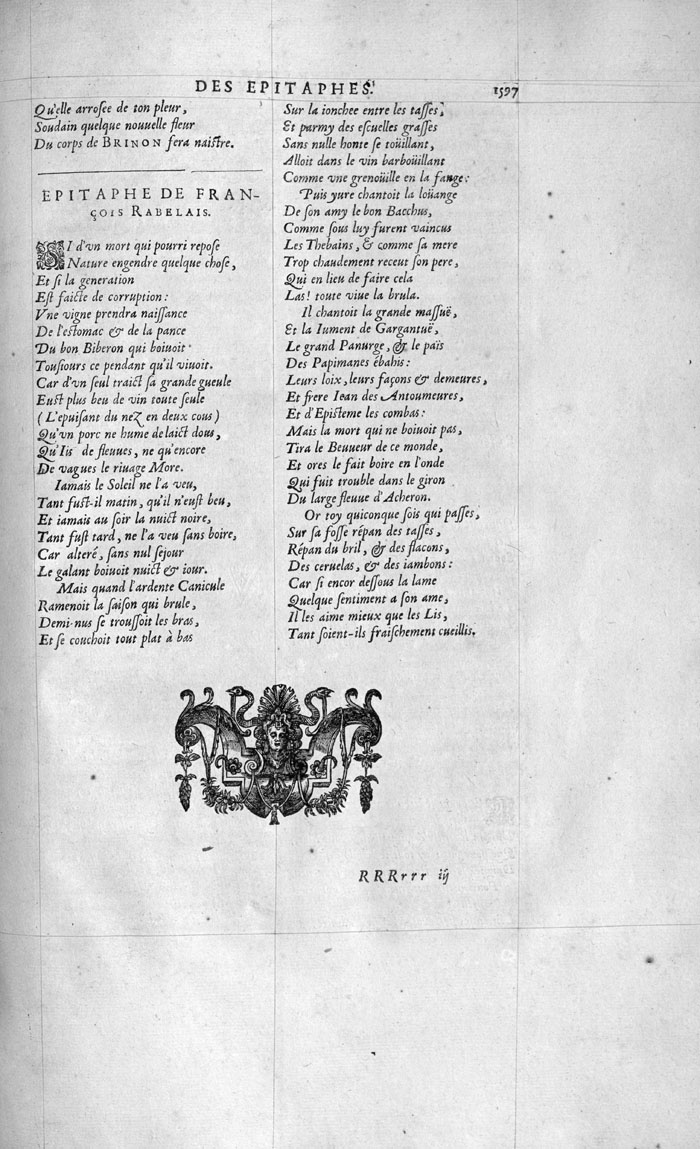 DES EPITAPHES. 1597
Qu'elle arroſee de ton pleur,
Soudain quelque nouuelle fleur
Du corps de BRINON ſera naiſtre.
EPITAPHE DE FRAN-
ÇOIS RABELAIS.
SI d'vn mort qui pourri repoſe
Nature engendre quelque choſe,
Et ſi la generation
Eſt faicte de corruption:
Vne vigne prendra naiſſance
De l'eſtomac & de la pance
Du bon Biberon qui boiuoit
Touſiours ce pendant qu'il viuoit.
Car d'vn ſeul traict ſa grande gueule
Euſt plus beu de vin toute ſeule
(L'epuiſant du nez en deux cous)
Qu'vn porc ne hume de laict dous,
Qu'Iis de fleuues, ne qu'encore
De vagues le riuage More.
Iamais le Soleil ne l'a veu,
Tant fuſt-il matin, qu'il n'euſt beu,
Et iamais au ſoir la nuict noire,
Tant fuſt tard, ne l'a veu ſans boire,
Car alteré, ſans nul ſejour
Le galant boiuoit nuict & iour.
Mais quand l'ardente Canicule
Ramenoit la ſaiſon qui brule,
Demi-nus ſe trouſſoit les bras,
Et ſe couchoit tout plat à bas
Sur la ionchee entre les taſſes,
Et parmy des eſcuelles graſſes
Sans nulle honte ſe toüillant,
Alloit dans le vin barboüillant
Comme vne grenoüille en la fange:
Puis yure chantoit la loüange
De ſon amy le bon Bacchus,
Comme ſous luy furent vaincus
Les Thebains, & comme ſa mere
Trop chaudement receut ſon pere,
Qui en lieu de faire cela
Las! toute viue la brula.
Il chantoit la grande maſſuë,
Et la Iument de Gargantuë,
Le grand Panurge, & le païs
Des Papimanes ébahis:
Leurs loix, leurs façons & demeures,
Et frere Iean des Antoumeures,
Et d'Epiſteme les combas:
Mais la mort qui ne boiuoit pas,
Tira le Beuueur de ce monde,
Et ores le fait boire en l'onde
Qui fuit trouble dans le giron
Du large fleuue d'Acheron.
Or toy quiconque ſois qui paſſes,
Sur ſa foſſe répan des taſſes,
Répan du bril, & des flacons,
Des ceruelas, & des iambons:
Car ſi encor deſſous la lame
Quelque ſentiment a ſon ame,
Il les aime mieux que les Lis,
Tant ſoient-ils fraiſchement cueillis.
RRRrrr iij